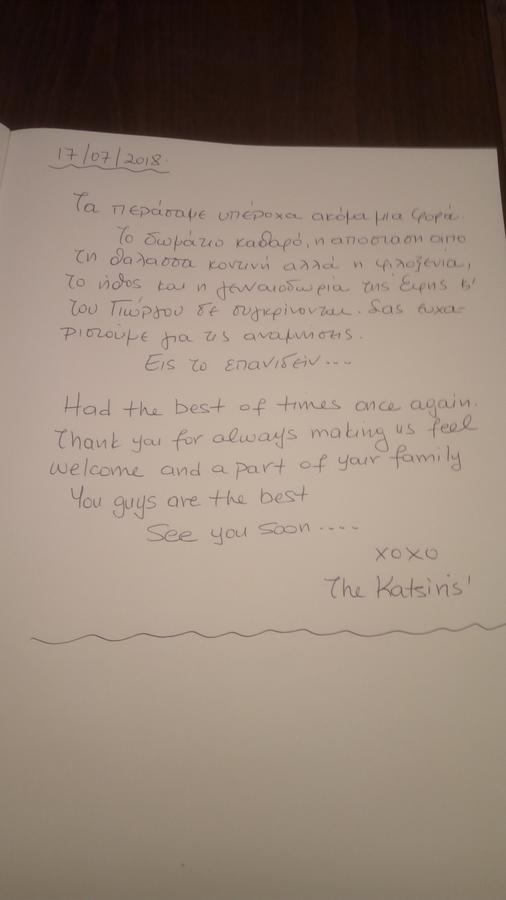 17/07/2018.
Τα περάσαμε υπέροχα ακόμα μια φορά.
Το δωμάτιο καθαρό, η αποσταση απο
τη θαλασσα κοντινή αλλά η φιλοξενία,
το ήθος και η γενναιοδωρία της Ειρης κ'
του Γιώργου δε συγκρίνονται. Σας ευχα-
ριστούμε για τις αναμνησης.
Εις το επανιδείν...
Had the best of times once again.
Thank you for always making us feel
welcome and a part of your family
You guys are the best
See you soon....
xoxo
The Katsiris'